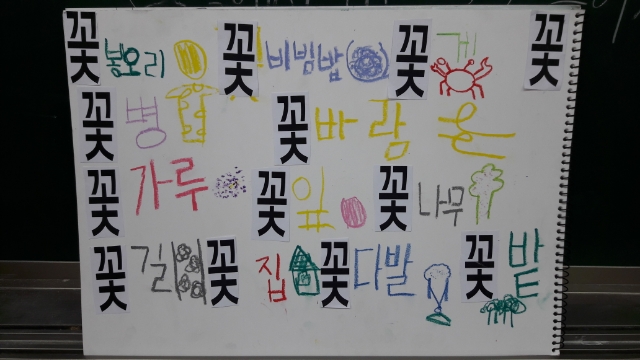 꽃봉오리 꽃비빔밥 꽃게 꽃
꽃병 꽃바람
꽃가루 꽃잎 꽃나무
꽃길 꽃집 꽃다발 꽃밭